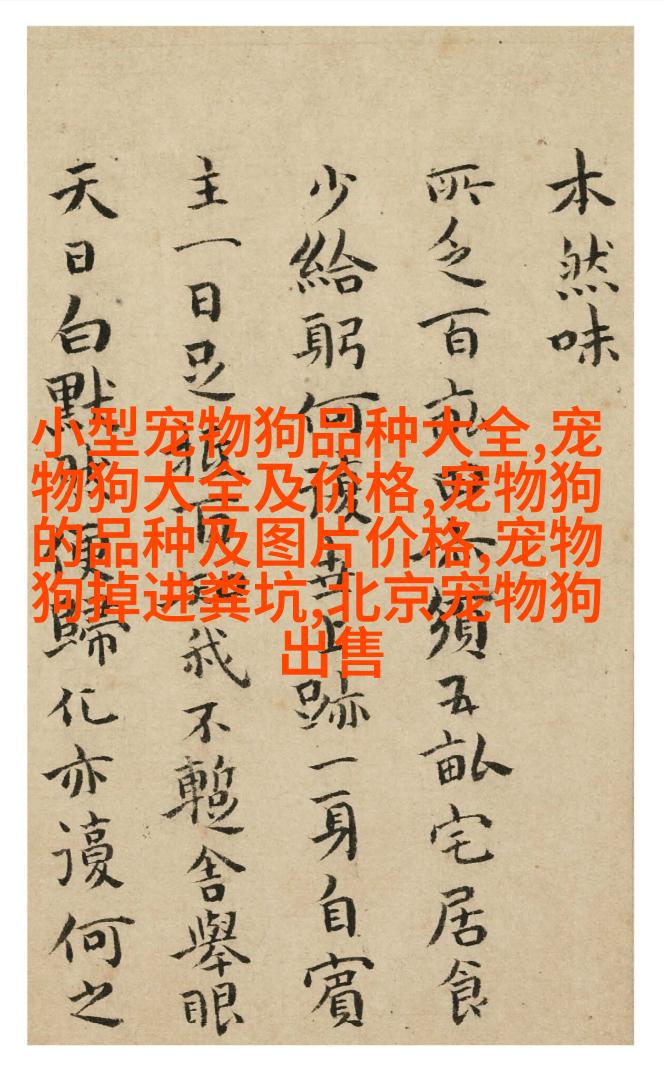 本然味
所乏百須五畝宅居食
少給躬何跡一身自賓
主一日足百我不暫舍舉眼
天日白默然便歸化亦謾何之
小型宠物狗品种大全,宠
物狗大全及价格,宠物狗
的品种及图片价格,宠物
狗掉进粪坑,北京宠物狗
出售